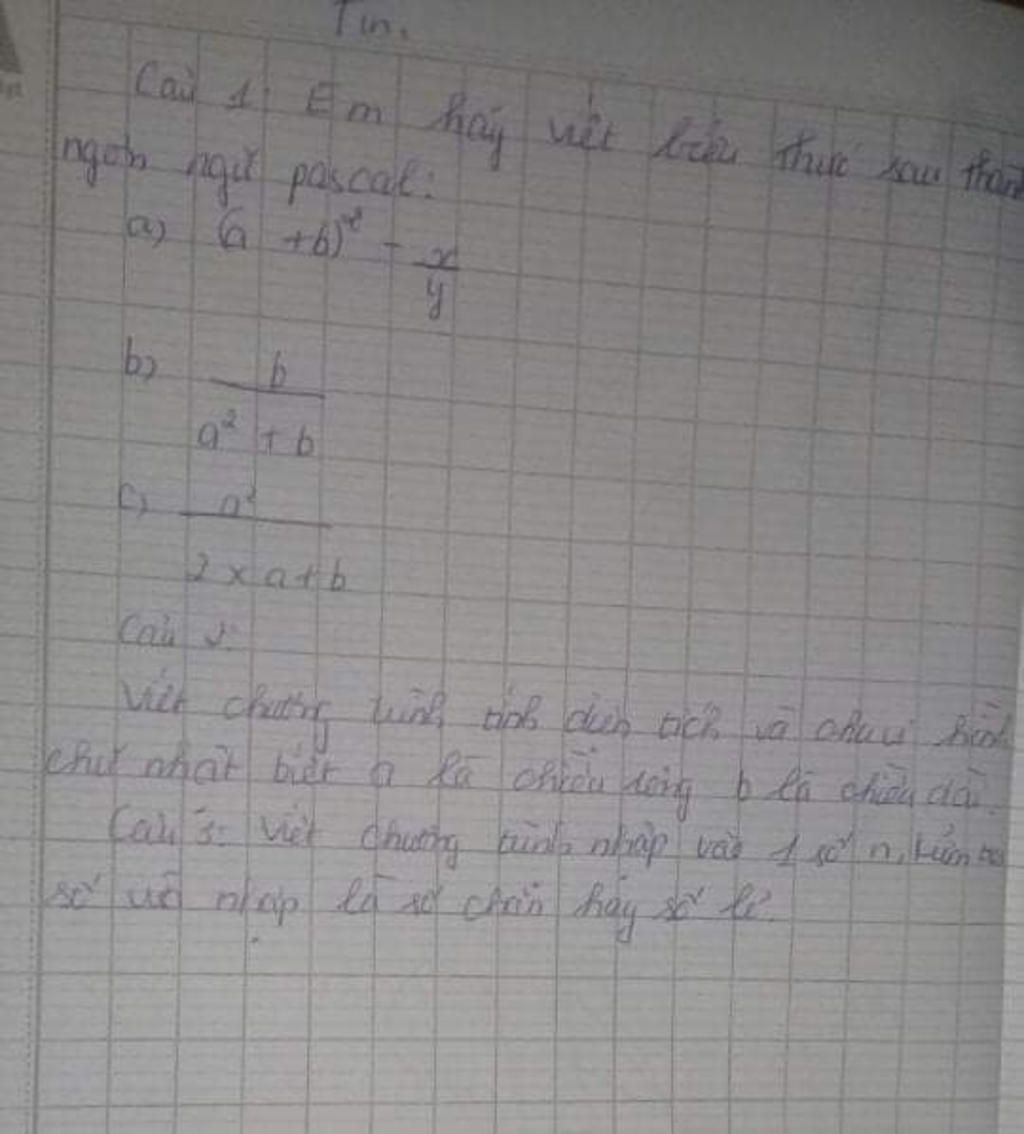 Tin.
Câu 1: Em hãy viết biểu thức sau thành
ngôn ngữ pascal:
a) (a + b)² - x/y
b) b/(a² + b)
c) a²/(2 x a + b)
Câu 2:
Viết chương trình tính diện tích và chu vi hình
chữ nhật biết a là chiều rộng b là chiều dài.
Câu 3: Viết chương trình nhập vào 1 số n, kiểm tra
số vừa nhập là số chẵn hay số lẻ.